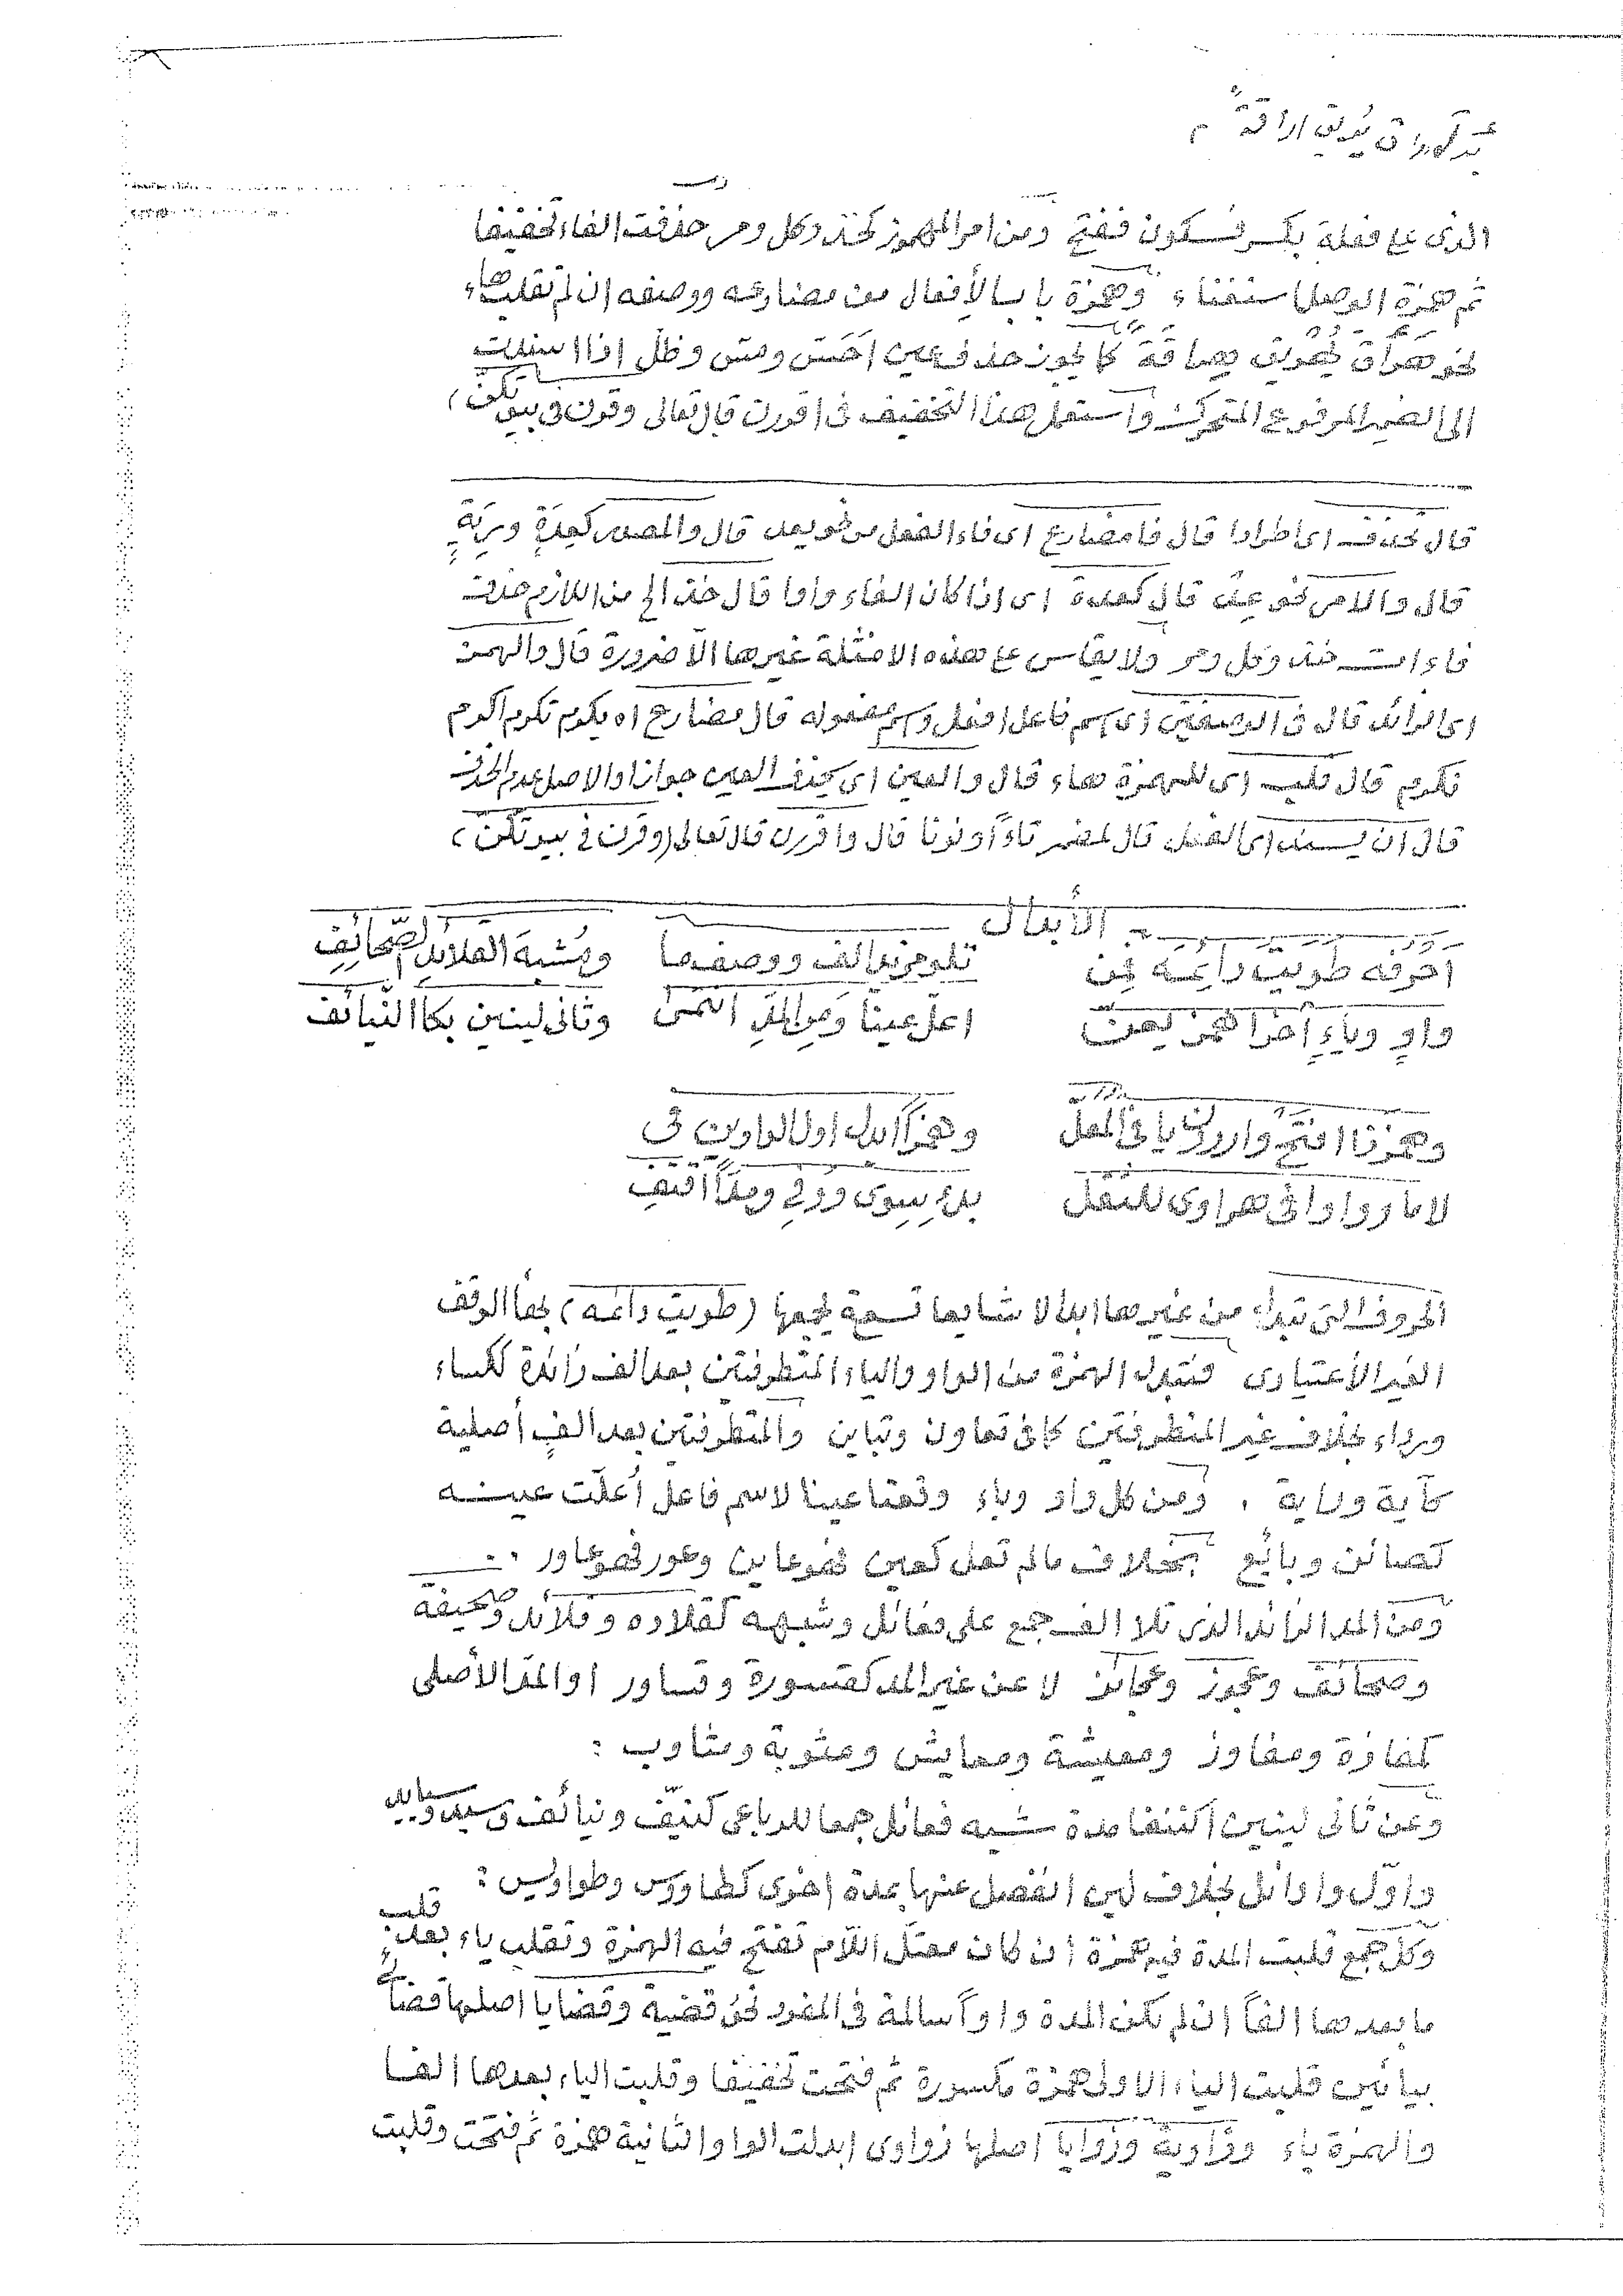 يريق اراقة م
الذى على فعلة بكسر فسكون ففتح ومن امر المهموز كخذ وكل ومر حذفت الفاء تخفيفا
ثم همزة الوصل استغناء وهمزة باب الأفعال من مضارعه ووصفه ان لم تقلب هاء
نحو هراق يهريق هراقة كما يجوز حذف عين احس ومس وظل اذا اسندت
الى الضمير المرفوع المتحرك واستعمل هذا التخفيف فى اقررن قال تعالى وقرن فى بيوتكن
قال تحذف اى اطرادا قال فا مضارع اى فاء الفعل من نحو يعد قال والمصدر كعدة وزنة
قال والامر نحو عد قال كعدة اى اذا كان الفاء واوا قال خذ الخ من اللازم حذف
فاءات خذ وكل ومر ولا يقاس على هذه الامثلة غيرها الا ضرورة قال والهمز
اى الزائد قال فى الوصفين اى اسم فاعل افعل واسم مفعوله قال مضارع اه يكرم تكرم اكرم
نكرم قال قلب اى للهمزة هاء قال والعين اى يحذف العين جوازا والاصل عدم الحذف
قال ان يسند اى الفعل قال لمضمر تاءً او نونا قال واقررن قال تعالى (وقرن فى بيوتكن)
الأبدال
احرفه طويت دائمه فمن تلو مزيد الف ووصفها ومشبه القلائد الصحائف
واو وياء اخرا همز يعن اعل عينا ومن المد وثانى لينين بكا النيائف
وهمزنا افتح وارددن يا فى المعل وهمزا ابدل اول الواوين فى
لاما وواوا فى هراوى للثقل بدء سوى ووفى ومدا اقتفى
الحروف التى تبدل من غيرها ابدالا شايعا تسعة يجمعها (طويت دائمه) بهاء الوقف
الغير الأعتيارى فتبدل الهمزة من الواو والياء المتطرفتين بعد الف زائدة ككساء
ورداء بخلاف غير المتطرفتين كما فى تعاون وتباين والمتطرفتين بعد الف أصلية
كآية وراية . ومن كل واو وياء وقعتا عينا لاسم فاعل أعلت عينه
كصائن وبائع بخلاف مالم تعل كعين فهو عاين وعور فهو عاور ..
ومن المد الزائد الذى تلا الف جمع على فعائل وشبهه كقلاده وقلائد وصحيفة
وصحائف وعجوز وعجائز لا عن غير المد كقسورة وقساور او المد الأصلى
كمفازة ومفاوز ومعيشة ومعايش ومثوبة ومثاوب :
وعن ثانى لينين اكتنفا مدة شبه فعائل جمعا للرباعى كنيّف ونيائف وسيد وسيايد
واوّل واوائل بخلاف لين انفصل عنها بمدة اخرى كطاووس وطواويس :
وكل جمع قلبت المدة فيه همزة أن كان معتل اللام تفتح فيه الهمزة وتقلب ياء بعد قلب
ما بعدها الفاً ان لم تكن المدة واواً سالمة فى المفرد نحو قضية وقضايا اصلها قضايى
بيائين قلبت الياء الاولى همزة مكسورة ثم فتحت تخفيفا وقلبت الياء بعدها الفا
والهمزة ياء وزاوية وزوايا اصلها زواوى ابدلت الواو الثانية همزة ثم فتحت وقلبت